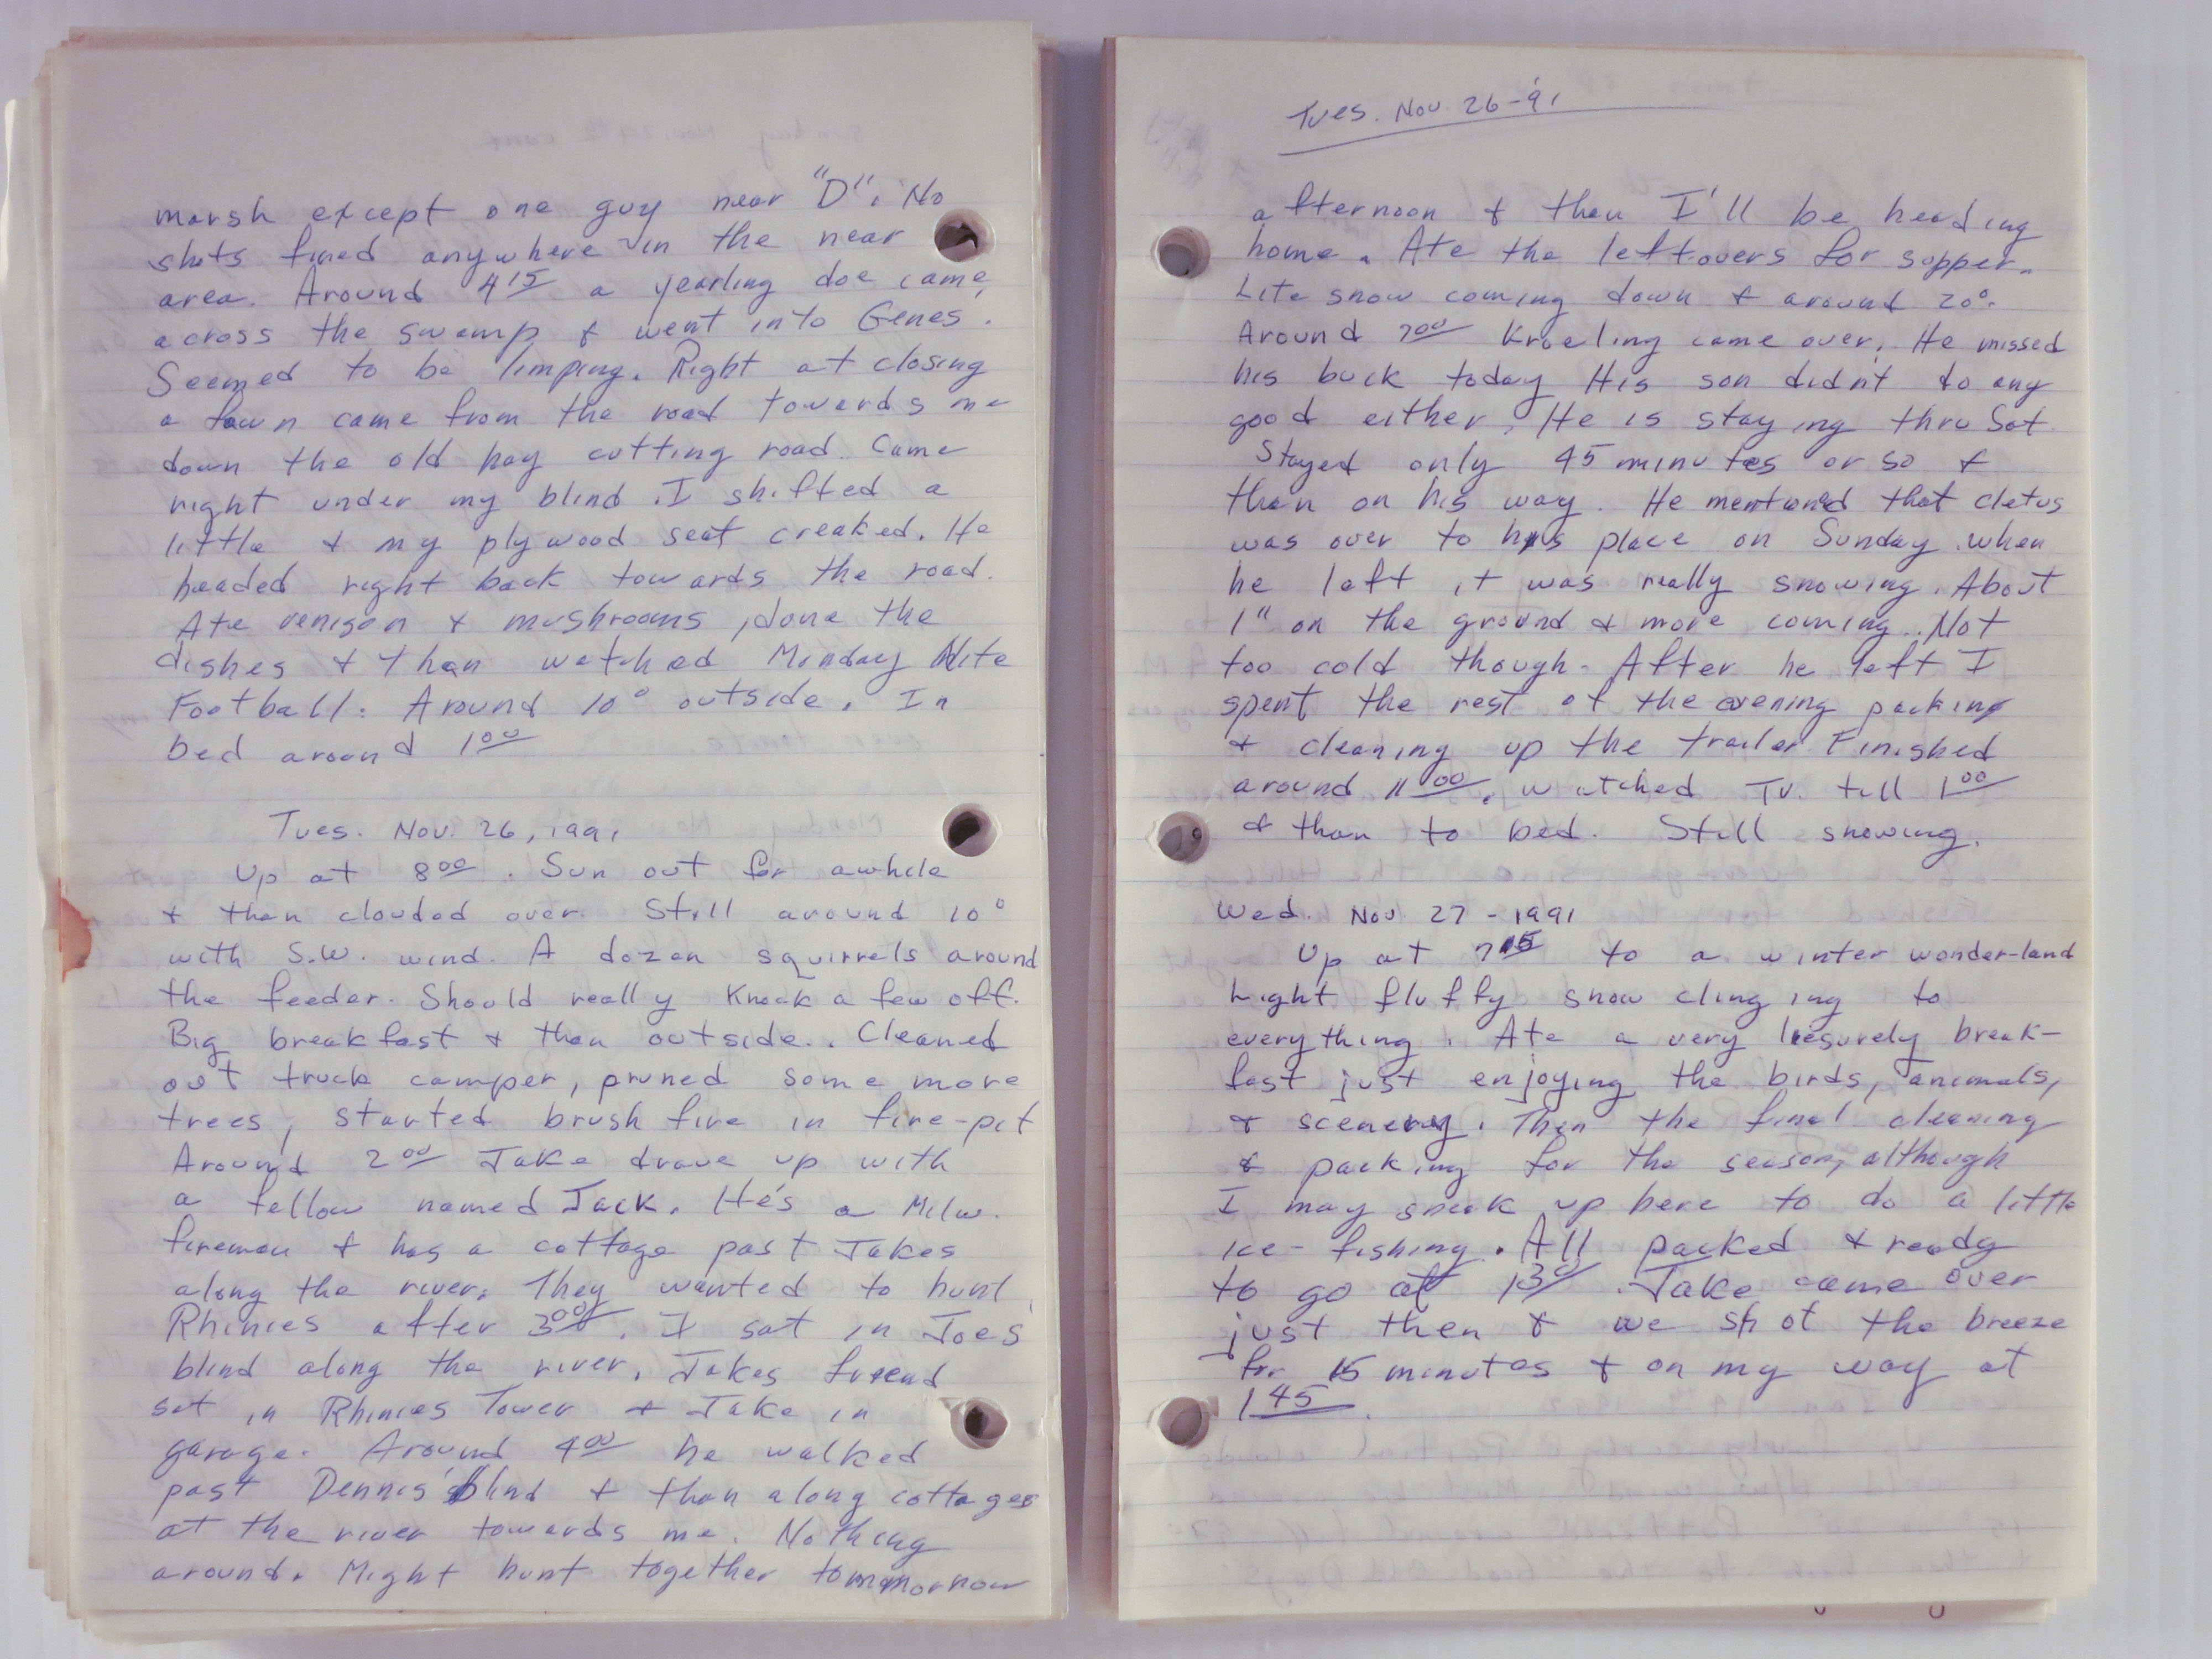 marsh except one guy near "D". No
shots fired anywhere in the near
area. Around 4 15 a yearling doe came
across the swamp & went into Genes.
Seemed to be limping. Right at closing
a fawn came from the road towards me
down the old hay cutting road. Came
right under my blind. I shifted a
little & my plywood seat creaked. He
headed right back towards the road.
Ate venison & mushrooms, done the
dishes & than watched Monday Nite
Football. Around 10° outside. In
bed around 1 00
Tues. Nov. 26, 1991
Up at 8 00. Sun out for awhile
& than clouded over. Still around 10°
with S.W. wind. A dozen squirrels around
the feeder. Should really Knock a few off.
Big breakfast & than outside.. Cleaned
out truck camper, pruned some more
trees, started brush fire in fire-pit
Around 2 00 Jake drove up with
a fellow named Jack. He's a Milw.
fireman & has a cottage past Jakes
along the river. They wanted to hunt
Rhinies after 3 00. I sat in Joes
blind along the river. Jakes friend
sat in Rhinies Tower & Jake in
garage. Around 4 00 he walked
past Dennis' blind & than along cottages
at the river towards me. Nothing
around. Might hunt together tommorrow
Tues. Nov. 26-'91
afternoon & then I'll be heading
home. Ate the leftovers for supper.
Lite snow coming down & around 20°.
Around 7 00 Kroeling came over. He missed
his buck today His son didn't do any
good either. He is staying thru Sat.
Stayed only 45 minutes or so &
than on his way. He mentioned that Cletus
was over to his place on Sunday. when
he left it was really snowing. About
1" on the ground & more coming. Not
too cold though. After he left I
spent the rest of the evening packing
& cleaning up the trailer. Finished
around 11 00. watched TV. till 1 00
& than to bed. Still snowing.
Wed. Nov 27 - 1991
Up at 7 15 to a winter wonder-land
Light fluffy snow clinging to
everything. Ate a very liesurely break-
fast just enjoying the birds, animals,
& scenery. Then the final cleaning
& packing for the season, although
I may sneak up here to do a little
ice-fishing. All packed & ready
to go at 1 30. Jake came over
just then & we shot the breeze
for 15 minutes & on my way at
1 45.